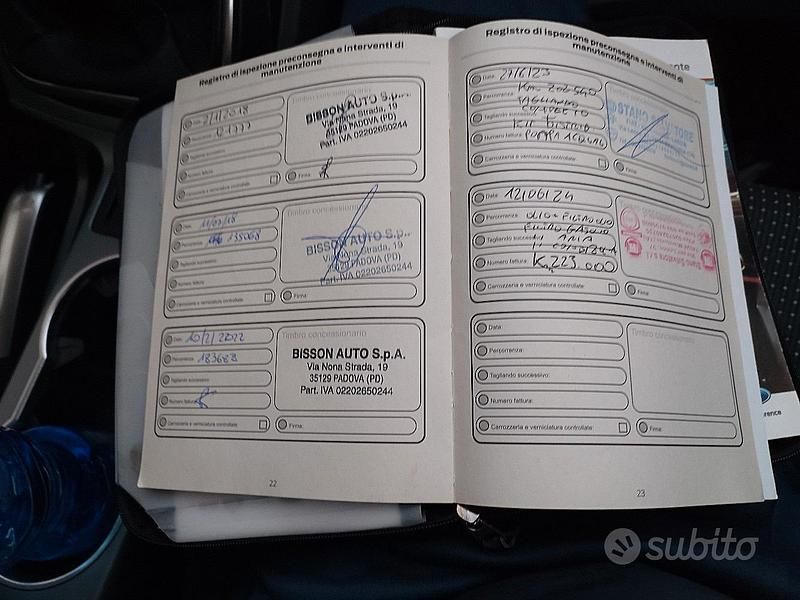 Registro di ispezione preconsegna e interventi di
manutenzione
Data:
Percorrenza:
Tagliando successivo:
Numero fattura:
Carrozzeria e verniciatura controllate:
Timbro concessionario
BISSON AUTO S.p.A.
Via Nona Strada, 19
35129 PADOVA (PD)
Part. IVA 02202650244
Firma:
Data:
Percorrenza: 135068
Tagliando successivo:
Numero fattura:
Carrozzeria e verniciatura controllate:
Timbro concessionario
BISSON AUTO S.p.A.
Via Nona Strada, 19
35129 PADOVA (PD)
Part. IVA 02202650244
Firma:
Data: 10/2/2022
Percorrenza: 183683
Tagliando successivo:
Numero fattura:
Carrozzeria e verniciatura controllate:
Timbro concessionario
BISSON AUTO S.p.A.
Via Nona Strada, 19
35129 PADOVA (PD)
Part. IVA 02202650244
Firma:
22
Registro di ispezione preconsegna e interventi di
manutenzione
Data: 27/6/23
Percorrenza: Km 202540
TAGLIANDO
COMPLETO
Tagliando
KIT DISTRIB
Numero fattura: POMPA ACQUA
Carrozzeria e verniciatura controllate:
Firma:
Data: 12/06/24
Percorrenza: OLIO + FILTRO OLIO
FILTRO GASOLIO
Tagliando successivo: " ARIA
Numero fattura: Km 223.000
Carrozzeria e verniciatura controllate:
Firma:
Data:
Percorrenza:
Tagliando successivo:
Numero fattura:
Carrozzeria e verniciatura controllate:
Timbro concessionario
Firma:
23
subito